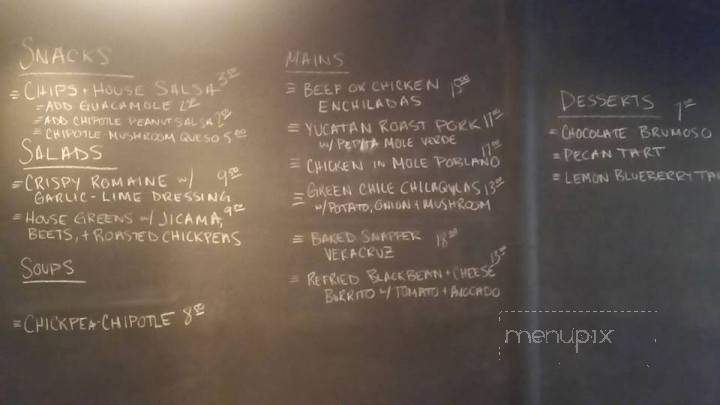 SNACKS
= CHIPS + HOUSE SALSA 3.00
= ADD GUACAMOLE 2.00
= ADD CHIPOTLE PEANUT SALSA 2.00
= CHIPOTLE MUSHROOM QUESO 5.00
SALADS
= CRISPY ROMAINE W/ 9.00
GARLIC-LIME DRESSING
= HOUSE GREENS W/ JICAMA, 9.00
BEETS, + ROASTED CHICKPEAS
SOUPS
= CHICKPEA-CHIPOTLE 8.00
MAINS
= BEEF OR CHICKEN 15.00
ENCHILADAS
= YUCATAN ROAST PORK
W/ PEPITA MOLE VERDE
= CHICKEN IN MOLE POBLANO
= GREEN CHILE CHILAQUILAS 13.00
W/ POTATO, ONION + MUSHROOM
= BAKED SNAPPER 18.00
VERACRUZ
= REFRIED BLACKBEAN + CHEESE 13.00
BURRITO W/ TOMATO + AVOCADO
DESSERTS 7.00
= CHOCOLATE BRUMOSO
= PECAN TART
= LEMON BLUEBERRY TA
menupix